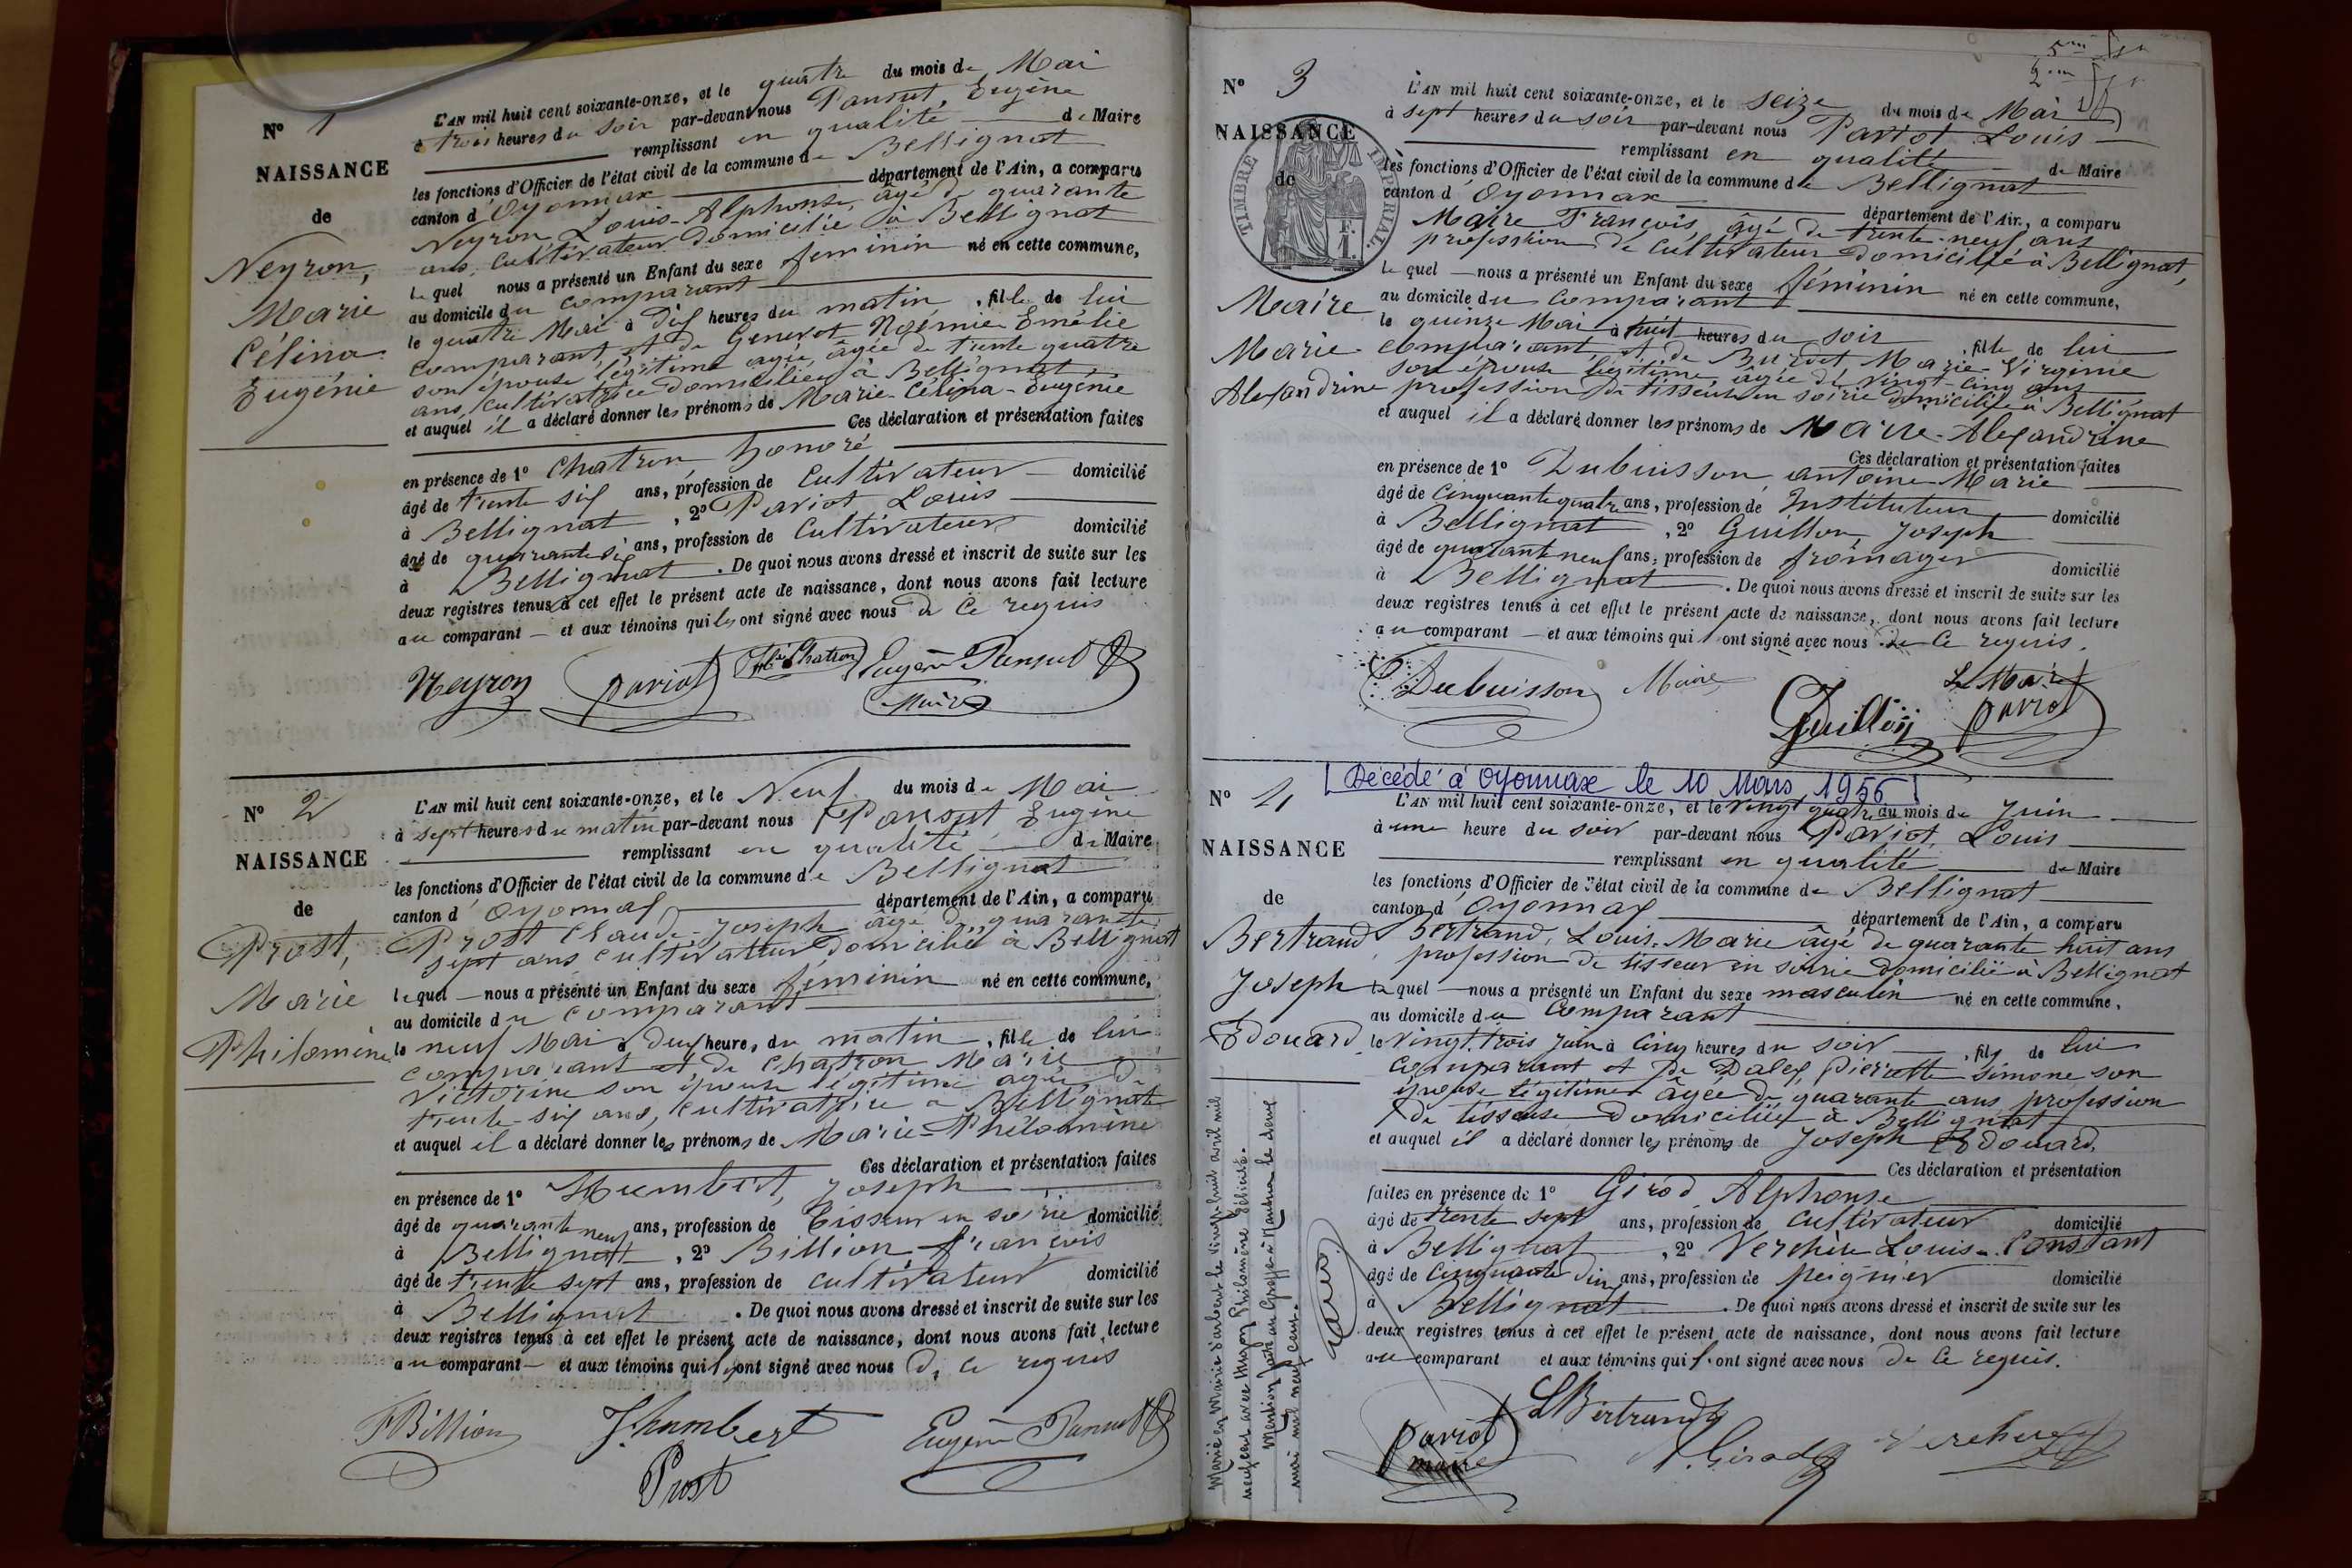 N° 1
NAISSANCE
de
Neyron,
Marie
Célina
Eugénie
L'AN mil huit cent soixante-onze, et le quatre du mois de Mai
à trois heures du soir par-devant nous Pansut, Eugène
remplissant en qualité de Maire
les fonctions d'Officier de l'état civil de la commune de Bellignat
canton d'Oyonnax département de l'Ain, a comparu
Neyron Louis-Alphonse, âgé de quarante
ans, cultivateur domicilié à Bellignat
lequel nous a présenté un Enfant du sexe féminin né en cette commune,
au domicile du comparant
le quatre Mai à dix heures du matin, fille de lui
comparant, et de Genevot Noémie Emélie
son épouse légitime agée, âgée de trente quatre
ans, cultivatrice domiciliée à Bellignat
et auquel il a déclaré donner les prénoms de Marie-Célina-Eugénie
Ces déclaration et présentation faites
en présence de 1° Chatron Honoré
âgé de trente six ans, profession de Cultivateur domicilié
à Bellignat, 2° Pariot Louis
âgé de quarante six ans, profession de Cultivateur domicilié
à Bellignat. De quoi nous avons dressé et inscrit de suite sur les
deux registres tenus à cet effet le présent acte de naissance, dont nous avons fait lecture
au comparant et aux témoins qui les ont signé avec nous de ce requis
Neyron Pariot Chatron Eugène Pansut
Maire
N° 2
NAISSANCE
de
Prost,
Marie
Philomine
L'AN mil huit cent soixante-onze, et le Neuf du mois de Mai
à sept heures du matin par-devant nous Pansut Eugène
remplissant en qualité de Maire
les fonctions d'Officier de l'état civil de la commune de Bellignat
canton d'Oyonnax département de l'Ain, a comparu
Prost Claude-Joseph âgé de quarante
sept ans cultivateur domicilié à Bellignat
lequel nous a présenté un Enfant du sexe féminin né en cette commune,
au domicile du comparant
le neuf Mai à deux heures du matin, fille de lui
comparant et de Chatron Marie
Victorine son épouse légitime agée de
trente-six ans, cultivatrice à Bellignat
et auquel il a déclaré donner les prénoms de Marie-Philomine
Ces déclaration et présentation faites
en présence de 1° Humbert, Joseph
âgé de quarante neuf ans, profession de Tisseur en soirie domicilié
à Bellignat, 2° Billion françois
âgé de trente sept ans, profession de cultivateur domicilié
à Bellignat. De quoi nous avons dressé et inscrit de suite sur les
deux registres tenus à cet effet le présent acte de naissance, dont nous avons fait lecture
au comparant et aux témoins qui ont signé avec nous de ce requis
FBillion J. humbert Eugène Pansut
Prost
N° 3
NAISSANCE
de
TIMBRE IMPÉRIAL.
1 F.
Maire
Marie
Alexandrine
L'AN mil huit cent soixante-onze, et le seize du mois de Mai
à sept heures du soir par-devant nous Pariot Louis
remplissant en qualité de Maire
les fonctions d'Officier de l'état civil de la commune de Bellignat
canton d'Oyonnax département de l'Ain, a comparu
Maire François, âgé de trente-neuf ans
profession de Cultivateur domicilié à Bellignat,
lequel nous a présenté un Enfant du sexe féminin né en cette commune,
au domicile du comparant
le quinze Mai à huit heures du soir, fille de lui
comparant, et de Burdet Marie-Virginie
son épouse légitime, âgée de vingt-cinq ans
profession de tisseuse en soirie domiciliée à Bellignat
et auquel il a déclaré donner les prénoms de Marie-Alexandrine
Ces déclaration et présentation faites
en présence de 1° Dubuisson, antoine Marie
âgé de cinquante quatre ans, profession de Instituteur domicilié
à Bellignat, 2° Guillon, Joseph
âgé de quarant neuf ans, profession de fromager domicilié
à Bellignat. De quoi nous avons dressé et inscrit de suite sur les
deux registres tenus à cet effet le présent acte de naissance, dont nous avons fait lecture
au comparant et aux témoins qui ont signé avec nous de ce requis.
Dubuisson Maire Guillon Le Maire
Pariot
Décédé à Oyonnax le 10 Mars 1956
N° 4
NAISSANCE
de
Bertrand
Joseph
Edouard
L'AN mil huit cent soixante-onze, et le vingt quatre du mois de Juin
à une heure du soir par-devant nous Pariot, Louis
remplissant en qualité de Maire
les fonctions d'Officier de l'état civil de la commune de Bellignat
canton d'Oyonnax département de l'Ain, a comparu
Bertrand, Louis-Marie âgé de quarante huit ans
profession de tisseur en soirie domicilié à Bellignat
lequel nous a présenté un Enfant du sexe masculin né en cette commune,
au domicile du Comparant
le vingt-trois juin à cinq heures du soir, fils de lui
comparant et de Dalex, Pierrette Simone son
épouse légitime âgée de quarante ans profession
de tisseuse domiciliée à Bellignat
et auquel il a déclaré donner les prénoms de Joseph Edouard
Ces déclaration et présentation
faites en présence de 1° Girod Alphonse
âgé de trente sept ans, profession de cultivateur domicilié
à Bellignat, 2° Verchère Louis-Constant
âgé de cinquante cinq ans, profession de peignier domicilié
à Bellignat. De quoi nous avons dressé et inscrit de suite sur les
deux registres tenus à cet effet le présent acte de naissance, dont nous avons fait lecture
au comparant et aux témoins qui ont signé avec nous de ce requis.
LBertrand
Pariot
maire
A. Girod Verchère
Marié en Mairie d'arbent le vingt-huit avril mil
neuf cent avec Hugon Philomène Félicité.
Mention faite au Greffe à Nantua le deux
mai mil neuf cent.